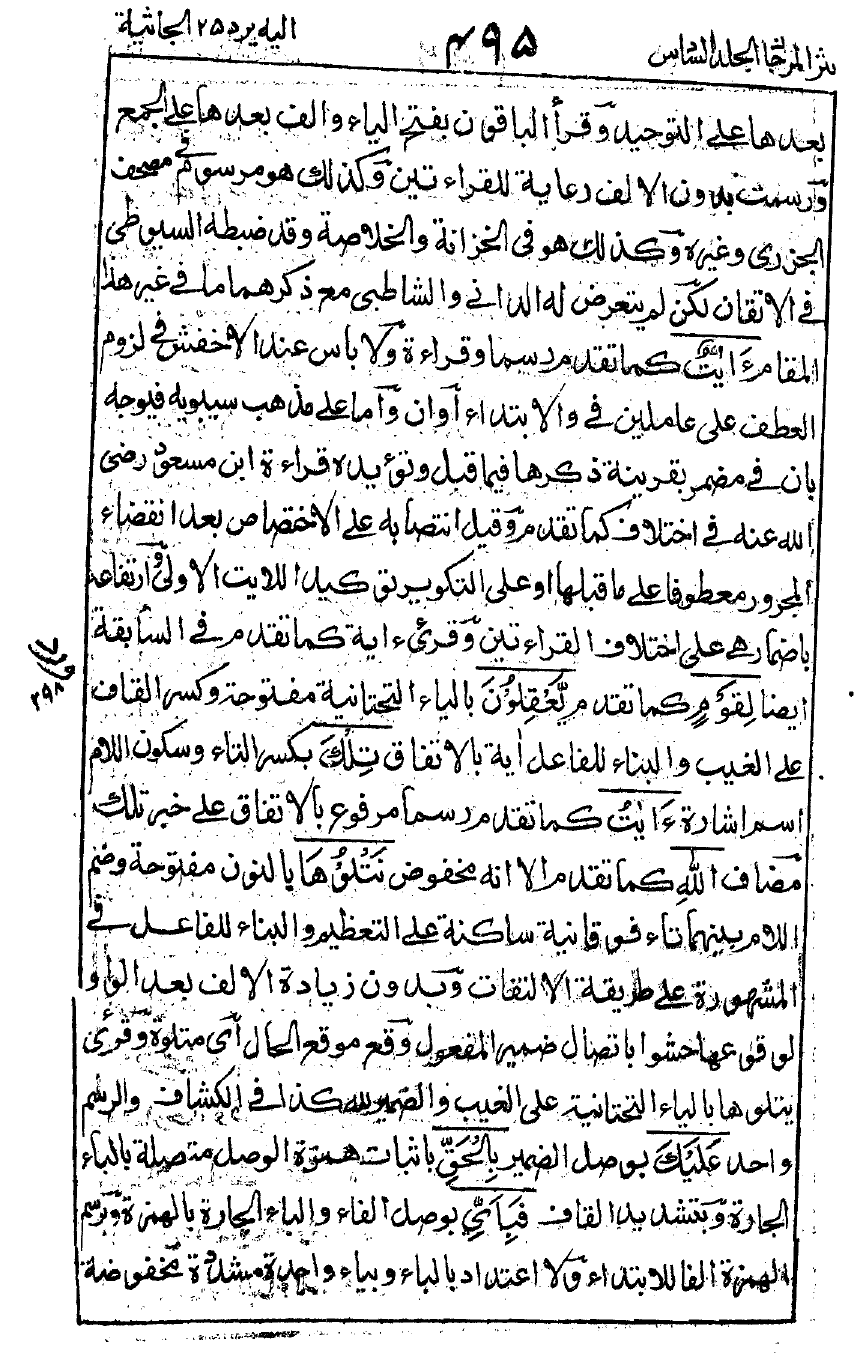 نثر المرجان الجلد السادس
٤٩٥
اليه يرد ٢٥ الجاثية
بعدها على التوحيد وقرأ الباقون بفتح الياء والف بعدها على الجمع
ورسمت بدون الالف رعاية للقراءتين وكذلك هو مرسوم في مصحف
الجزرى وغيره وكذلك هو فى الخزانة والخلاصة وقد ضبطه السيوطى
فى الاتقان لكن لم يتعرض له الدانى والشاطبى مع ذكرهما ما فى غير هذا
المقام ءَايٰتٌ كما تقدم رسما وقراءة ولا باس عند الاخفش فى لزوم
العطف على عاملين فى والابتداء أوان واما على مذهب سيبويه فيوجه
بان فى مضمر بقرينة ذكرها فيما قبل وتؤيده قراءة ابن مسعود رضى
الله عنه فى اختلاف كما تقدم وقيل انتصابه على الاختصاص بعد انقضاء
المجرور معطوفا على ما قبلها او على التكرير توكيدا للايت الاولى وارتفاعه
باضمار هى على اختلاف القراءتين وقرئ ءاية كما تقدم فى السابقة
ايضا لِقَوْمٍ كما تقدم يَّعْقِلُوْنَ بالياء التحتانية مفتوحة وكسر القاف
على الغيب والبناء للفاعل أية بالاتفاق تِلْكَ بكسر التاء وسكون اللام
اسم اشارة ءَايٰتُ كما تقدم رسما مرفوع بالاتفاق على خبر تلك
مضاف اللّٰهِ كما تقدم الا انه مخفوض نَتْلُوْهَا بالنون مفتوحة وضم
اللام بينهما تاء فوقانية ساكنة على التعظيم والبناء للفاعل فى
المشهورة على طريقة الالتفات وبدون زيادة الالف بعد الواو
لوقوعها حشوا باتصال ضمير المفعول وقع موقع الحال أى متلوة وقرئ
يتلوها بالياء التحتانية على الغيب والضمير لله كذا فى الكشاف والرسم
واحد عَلَيْكَ بوصل الضمير بِالْحَقِّ باثبات همزة الوصل متصلة بالباء
الجارة وبتشديد القاف فَبِاَىِّ بوصل الفاء والباء الجارة بالهمزة وبرسم
الهمزة الفا للابتداء ولا اعتداد بالباء وبياء واحدة مشددة مخفوضة